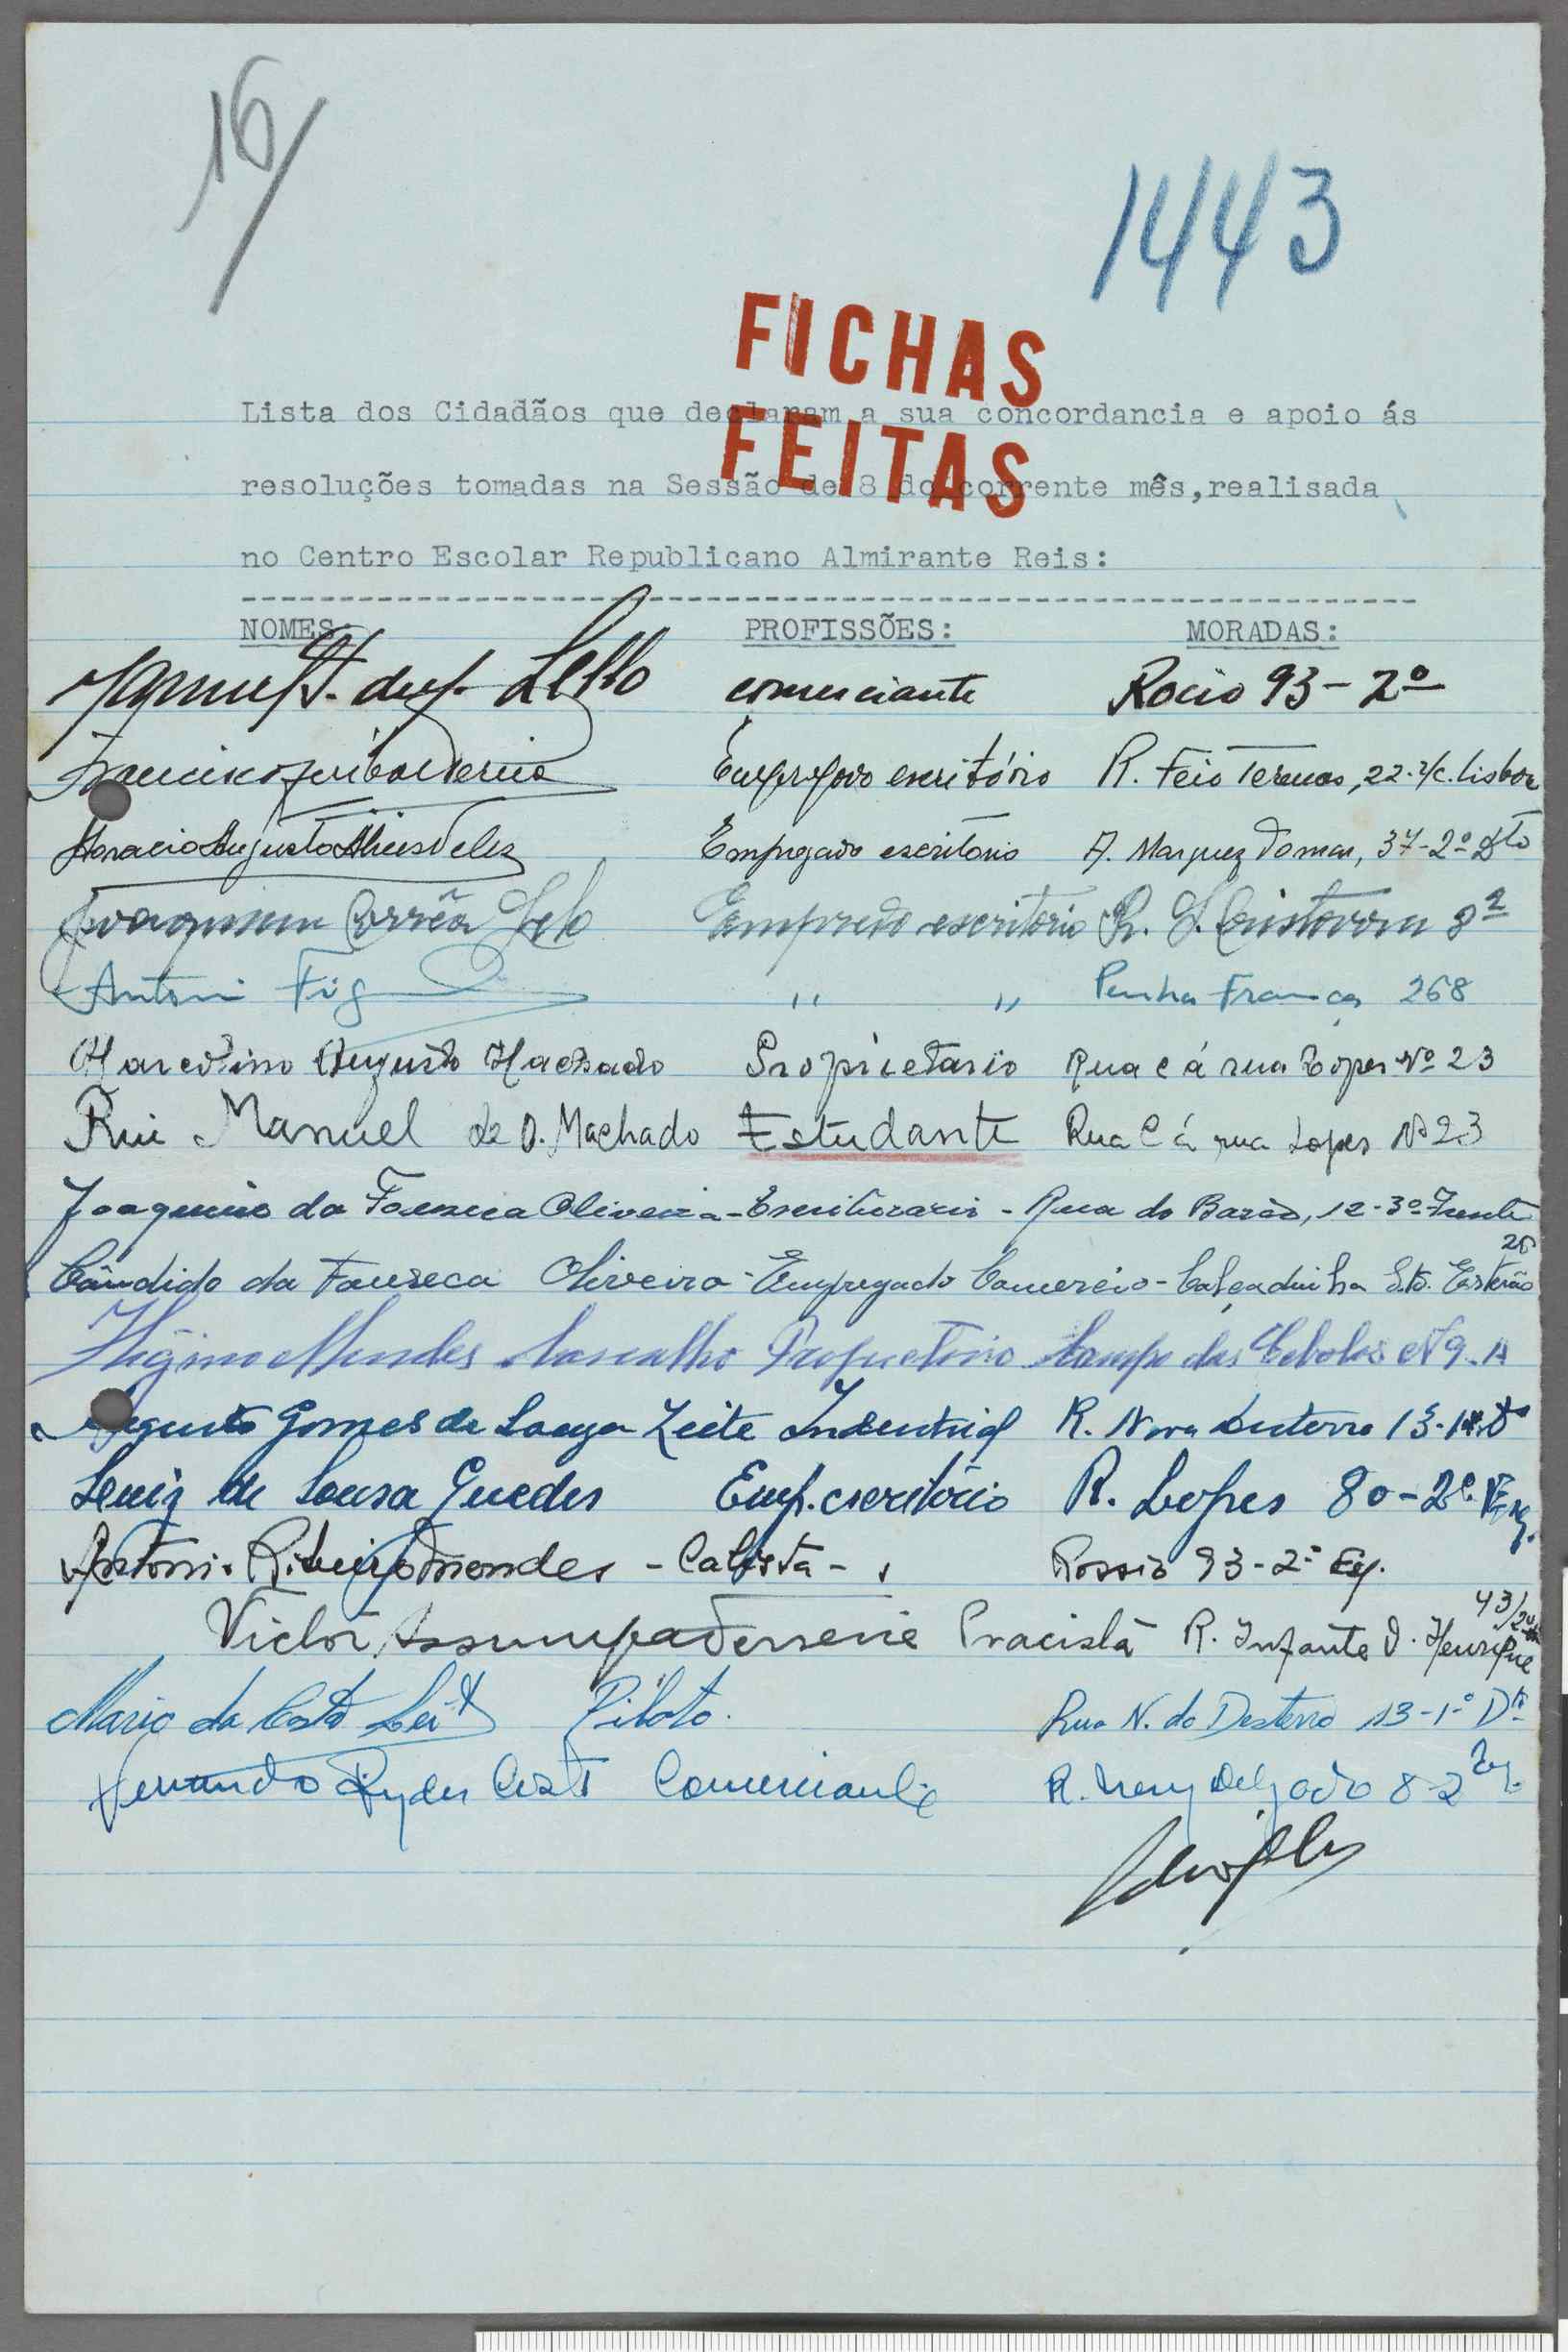 16/
1443
FICHAS
FEITAS
Lista dos Cidadãos que declaram a sua concordancia e apoio ás
resoluções tomadas na Sessão de 8 do corrente mês,realisada
no Centro Escolar Republicano Almirante Reis:
NOMES PROFISSÕES: MORADAS:
Lello comerciante Rocio 93-2º
Francisco escritório R. Feio Terenas, 22-r/c. Lisboa
Horacio Augusto Empregado escritorio 37-2º Dto
Joaquim Corrêa escritorio R. S. Cristovam 8
Antoni Fig " " Penha França 268
Marcolino Augusto Machado Proprietario Rua C á rua Lopes Nº 23
Rui Manuel de O. Machado Estudante Rua C á rua Lopes Nº 23
Joaquim da Fonseca Oliveira - Escriturario - Rua do Barão, 12-3º Frente
Cândido da Fonseca Oliveira - Empregado Comercio - Calçadinha Sto. Estevão 26
Higino Mendes Proprietario Campo das Cebolas Nº 9-A
Augusto Gomes de Leite Industrial R. Nova 13-1º
Luiz de Sousa Guedes Emp. escritório R. Lopes 80-2º Esq.
Antoni Ribeiro Mendes - - Rossio 93-2º Eq.
Victor Pracista R. Infante D. Henrique 43/2º
Mario da Costa Leite Piloto. Rua N. do Desterro 13-1º Dto
Fernando Ryder Costa Comerciante R. Nery Delgado 8-2º Esq.